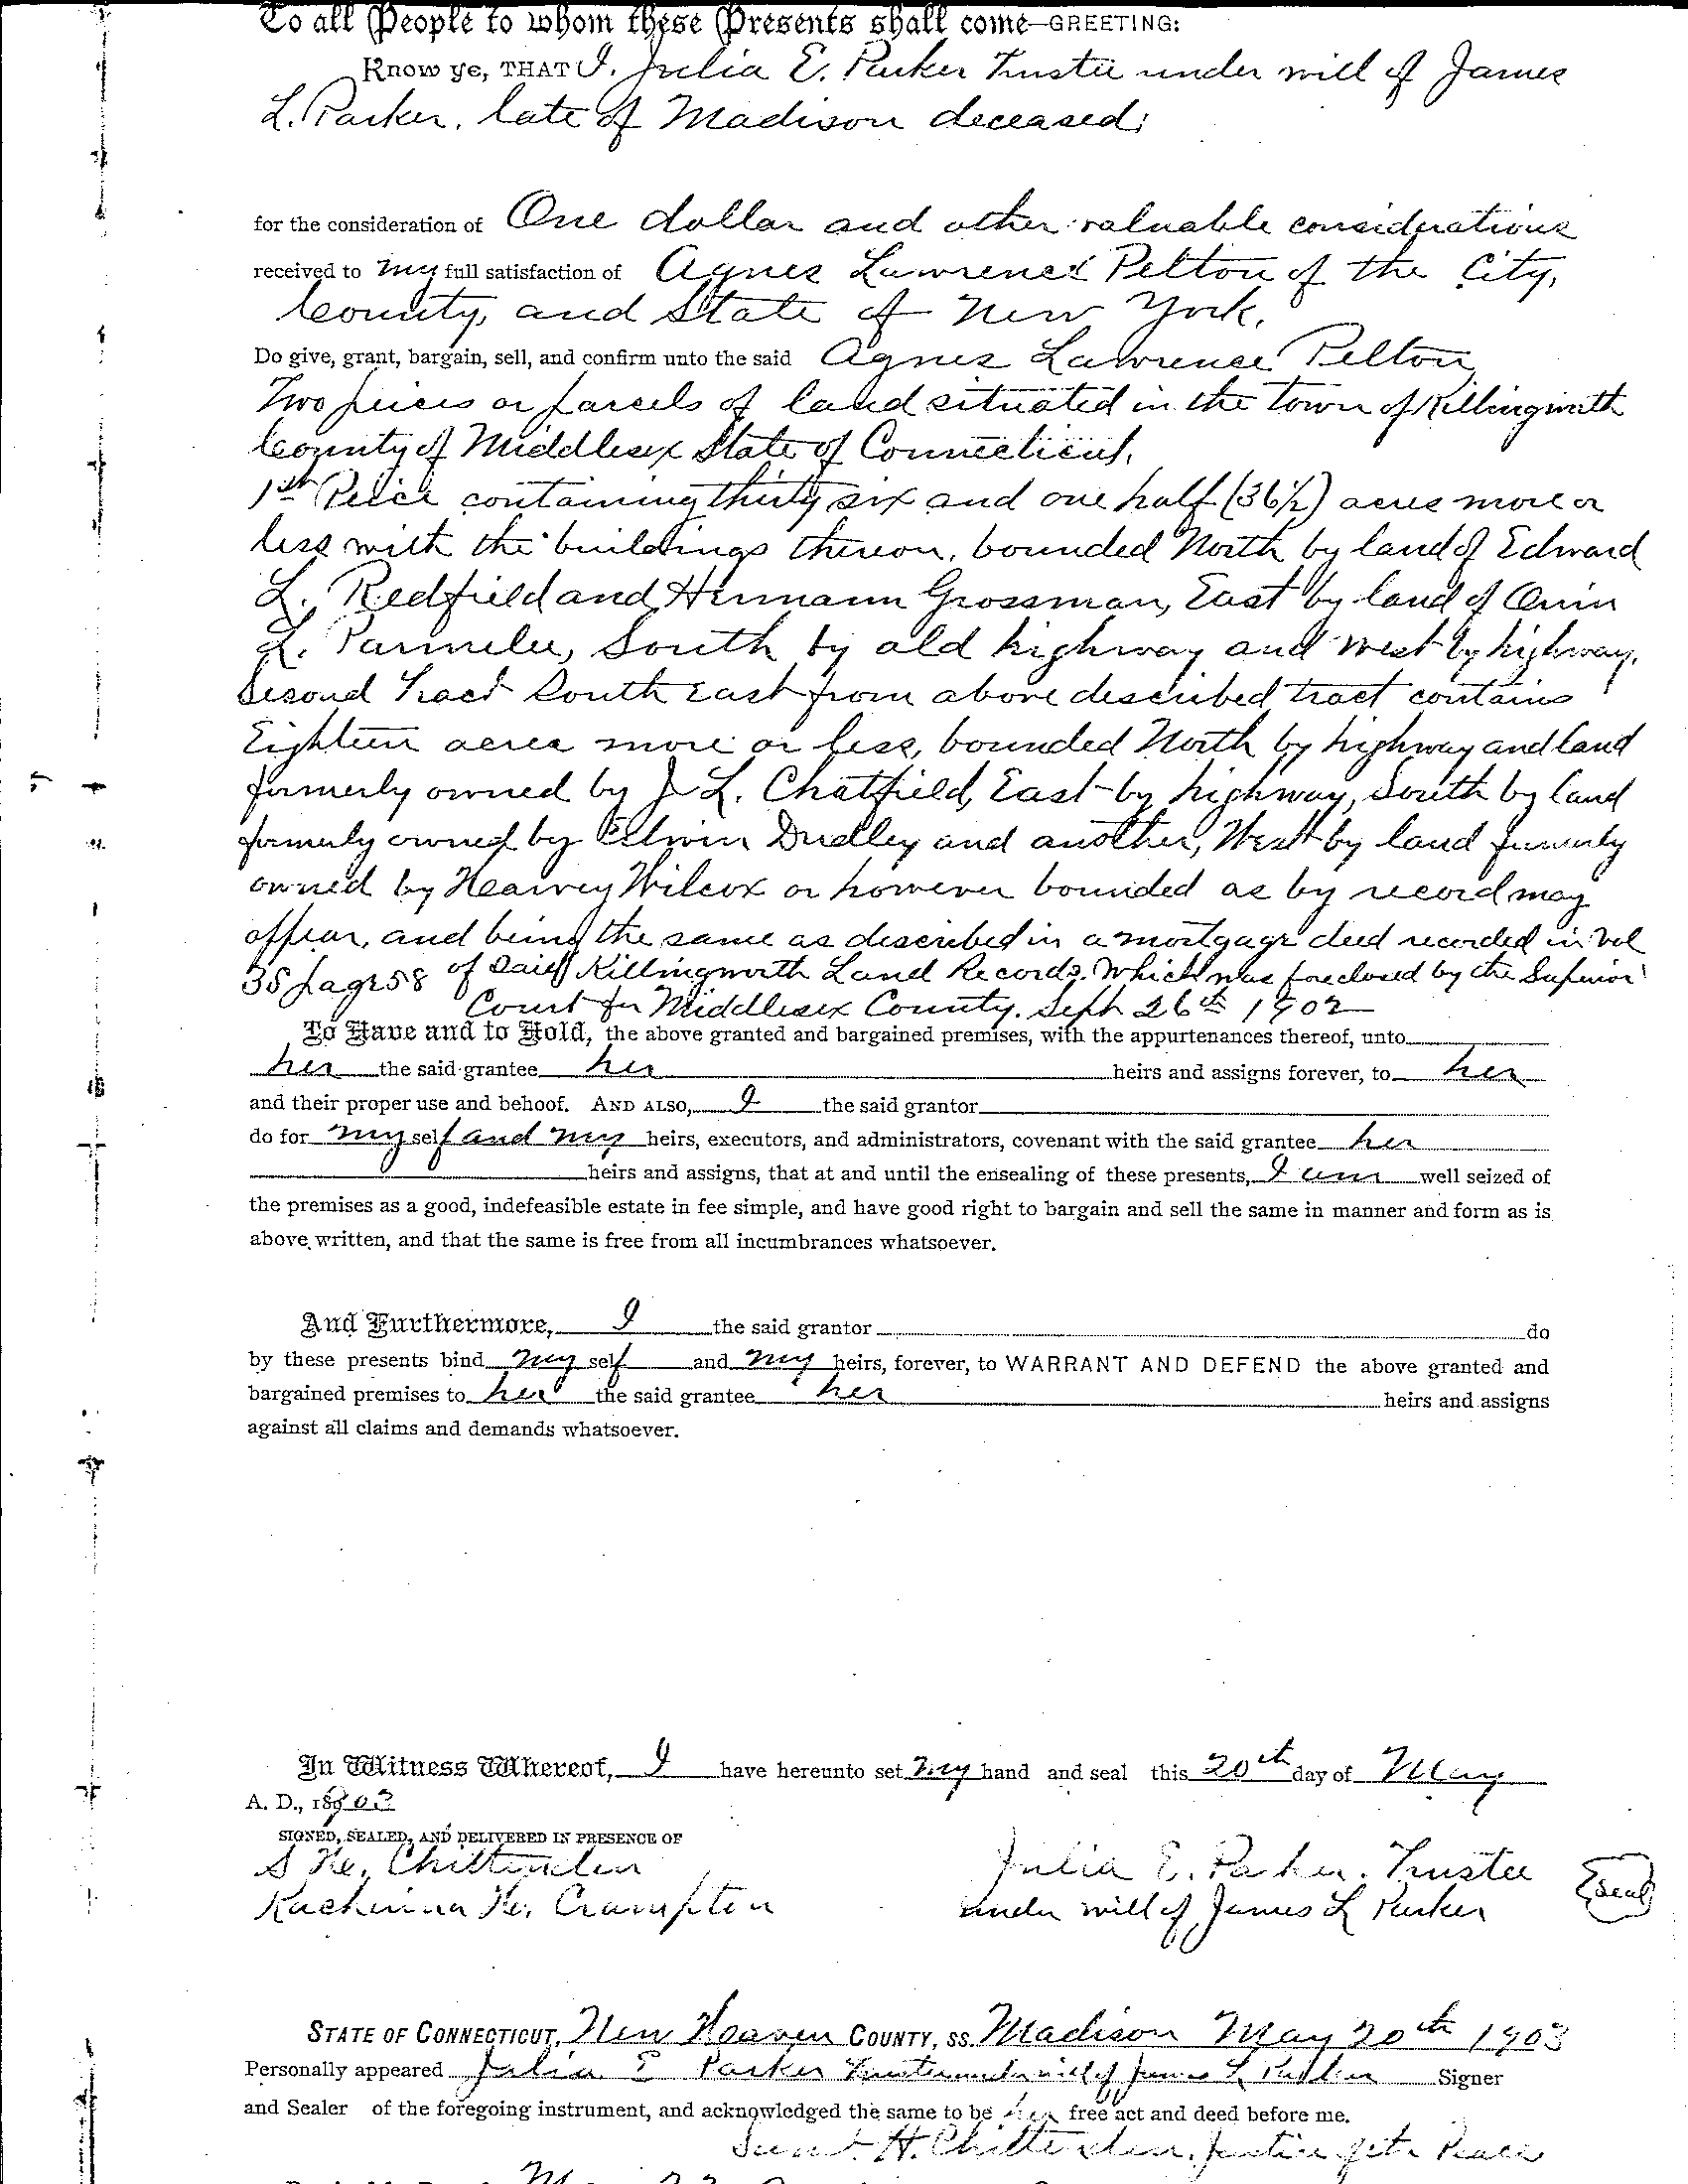 To all People to whom these Presents shall come—GREETING:
Know ye, THAT I, Julia E. Parker Trustee under will of James
L. Parker, late of Madison deceased;
for the consideration of One dollar and other valuable considerations
received to my full satisfaction of Agnes Lawrence Pelton of the City,
County, and State of New York,
Do give, grant, bargain, sell, and confirm unto the said Agnes Lawrence Pelton
Two peices or parcels of land situated in the town of Killingworth
County of Middlesex State of Connecticut,
1st Peice containing thirty six and one half (36½) acres more or
less with the buildings thereon, bounded North by land of Edward
L. Redfield and Hermann Grossman, East by land of Orrin
L. Parmelee, South by old highway and west by highway.
Second Tract South east from above described tract contains
Eighteen acres more or less, bounded North by highway and land
formerly owned by J. L. Chatfield, East by highway, South by land
formerly owned by Edwin Dudley and another, West by land formerly
owned by Hearvey Wilcox or however bounded as by record may
appear, and being the same as described in a mortgage deed recorded in Vol
35 page 58 of said Killingworth Land Records. Which was foreclosed by the Superior
Court for Middlesex County. Sept 26th 1902
To Have and to Hold, the above granted and bargained premises, with the appurtenances thereof, unto
her the said grantee her heirs and assigns forever, to her
and their proper use and behoof. AND ALSO, I the said grantor
do for my self and my heirs, executors, and administrators, covenant with the said grantee her
heirs and assigns, that at and until the ensealing of these presents, I am well seized of
the premises as a good, indefeasible estate in fee simple, and have good right to bargain and sell the same in manner and form as is
above written, and that the same is free from all incumbrances whatsoever.
And Furthermore, I the said grantor do
by these presents bind my self and my heirs, forever, to WARRANT AND DEFEND the above granted and
bargained premises to her the said grantee her heirs and assigns
against all claims and demands whatsoever.
In Witness Whereof, I have hereunto set my hand and seal this 20th day of May
A. D., 1903
SIGNED, SEALED, AND DELIVERED IN PRESENCE OF
S H. Chittenden
Julia E. Parker. Trustee
Seal
H. Crampton
under will of James L Parker
STATE OF CONNECTICUT, New Haven COUNTY, SS. Madison May 20th 1903
Personally appeared Julia E Parker Trustee under will of James L Parker Signer
and Sealer of the foregoing instrument, and acknowledged the same to be her free act and deed before me.
H. Chittenden. Justice of the Peace